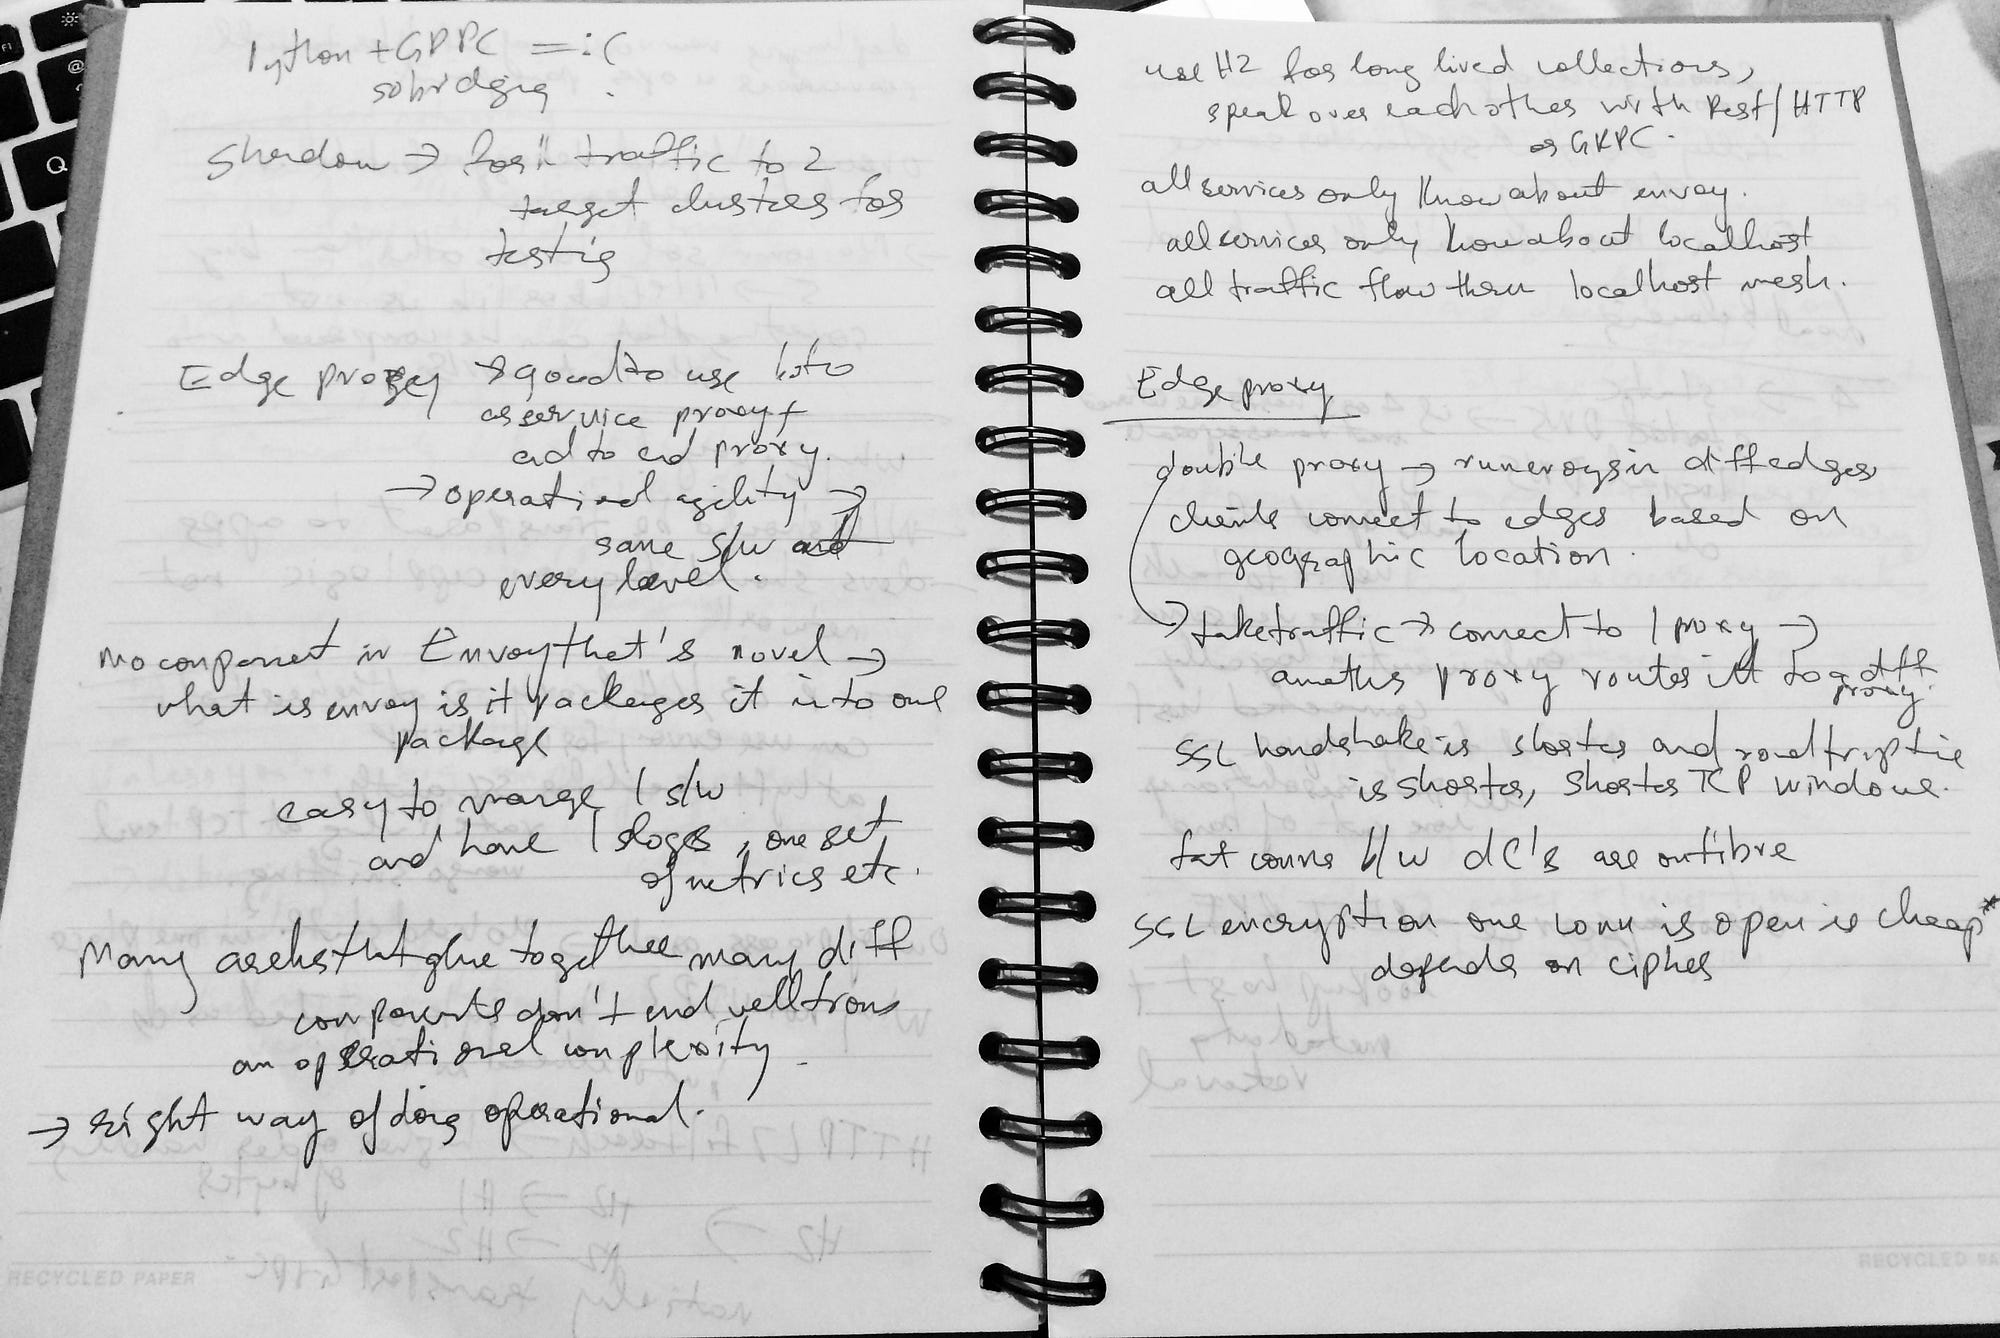 Python + GRPC = :(
so bridging.
Shadow → fork traffic to 2
target clusters for
testing
Edge proxy → good to use both
as service proxy +
end to end proxy.
→ operational agility →
same s/w
every level.
no component in Envoy that's novel →
what is envoy is it packages it into one
package
easy to manage 1 s/w
and have 1 , one set
of metrics etc.
Many archs that glue together many diff
components don't end well from
an operational complexity.
→ right way of doing operational.
RECYCLED PAPER
use H2 for long lived collections,
speak over each other with Rest/HTTP
or GRPC.
all services only know about envoy.
all services only know about localhost
all traffic flow thru localhost mesh.
Edge proxy
double proxy → run envoys in diff edges
clients connect to edges based on
geographic location.
→ take traffic → connect to 1 proxy →
another proxy routes it to a diff
proxy.
SSL handshake is shorter and roundtrip time
is shorter, shorter TCP windows.
fat conns b/w dC's are on fibre
SSL encryption one conn is open is cheap*
depends on cipher
RECYCLED PA